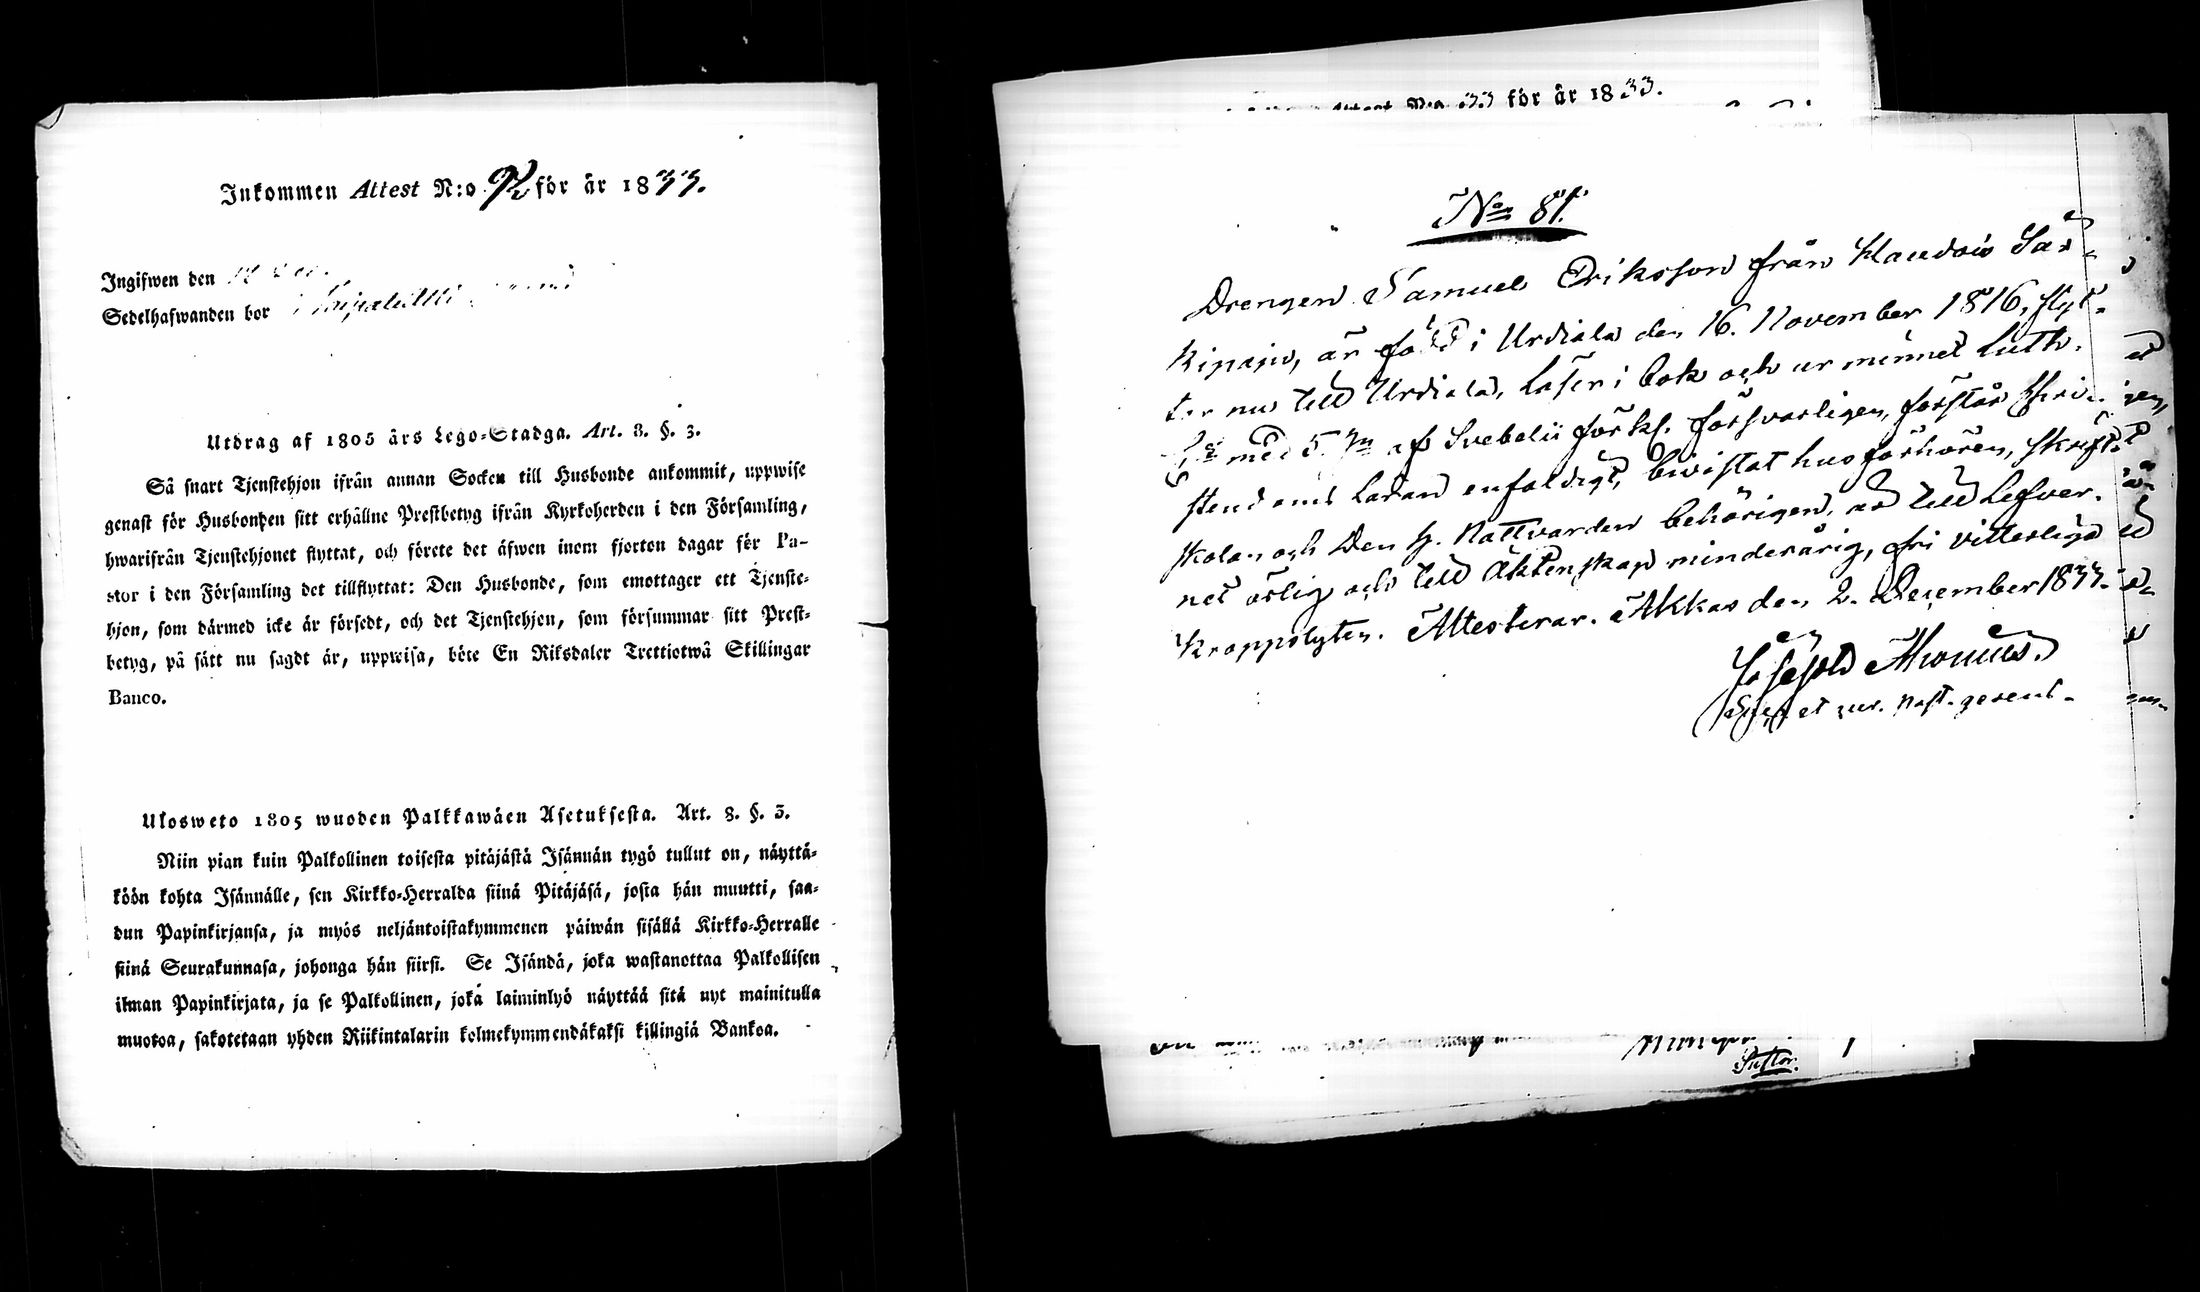 Inkommen Attest N:o 92 för år 1833.
Ingifwen den
Sedelhafwanden bor
Utdrag af 1805 års Lego-Stadga. Art. 8. §. 3.
Så snart Tjenstehjon ifrån annan Socken till Husbonde ankommit, uppwise
genast för Husbonden sitt erhållne Prestbetyg ifrån Kyrkoherden i den Församling,
hwarifrån Tjenstehjonet flyttat, och förete det äfwen inom fjorton dagar för Pa-
stor i den Församling det tillflyttat: Den Husbonde, som emottager ett Tjenste-
hjon, som därmed icke är försedt, och det Tjenstehjon, som försummar sitt Prest-
betyg, på sätt nu sagdt är, uppwisa, böte En Riksdaler Trettiotwå Skillingar
Banco.
Ulosweto 1805 wuoden Palkkawäen Asetuksesta. Art. 8. §. 3.
Niin pian kuin Palkollinen toisesta pitäjästä Isännän tygö tullut on, näyttä-
köön kohta Isännälle, sen Kirkko-Herralda siinä Pitäjäsä, josta hän muutti, saa-
dun Papinkirjansa, ja myös neljäntoistakymmenen päiwän sisällä Kirkko-Herralle
siinä Seurakunnasa, johonga hän siirsi. Se Isändä, joka wastanottaa Palkollisen
ilman Papinkirjata, ja se Palkollinen, joka laiminlyö näyttää sitä nyt mainitulla
muotoa, sakotetaan yhden Riikintalarin kolmekymmendäkaksi killingiä Bankoa.
Attest N:o 33 för år 1833.
No 81.
Drengen Samuel Eriksson från Klaudois Sär-
kipaju, är född i Urdiala den 16. November 1816, flyt-
ter nu till Urdiala, läser i bok och ur minnet Luth.
med 5. af Svebelii förkl. försvarligen, förstår Chri-
stendoms Läran enfaldigt, bivistat husförhören, skrift-
skolan och Den H. Nattvarden behörigen, är till Lefver-
net ärlig och till äktenskap minderårig, fri vitterliga
kroppslyten. Attesterar. Akkas den 2. December 1833.
Joseph
et cur. past. gerent.
Pastor.